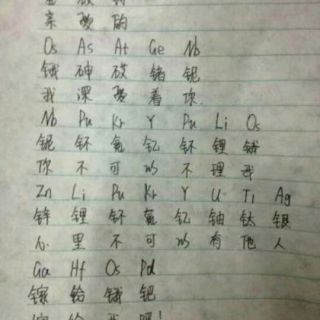 亲 爱 的
Os As At Ge Nb
锇 砷 砹 锗 铌
我 深 爱 着 你.
Nb Pu Kr Y Pu Li Os
铌 钚 氪 钇 钚 锂 锇
你 不 可 以 不 理 我
Zn Li Pu Kr Y U Ti Ag
锌 锂 钚 氪 钇 铀 钛 银
心 里 不 可 以 有 他 人
Ga Hf Os Pd
镓 铪 锇 钯
嫁 给 我 吧!